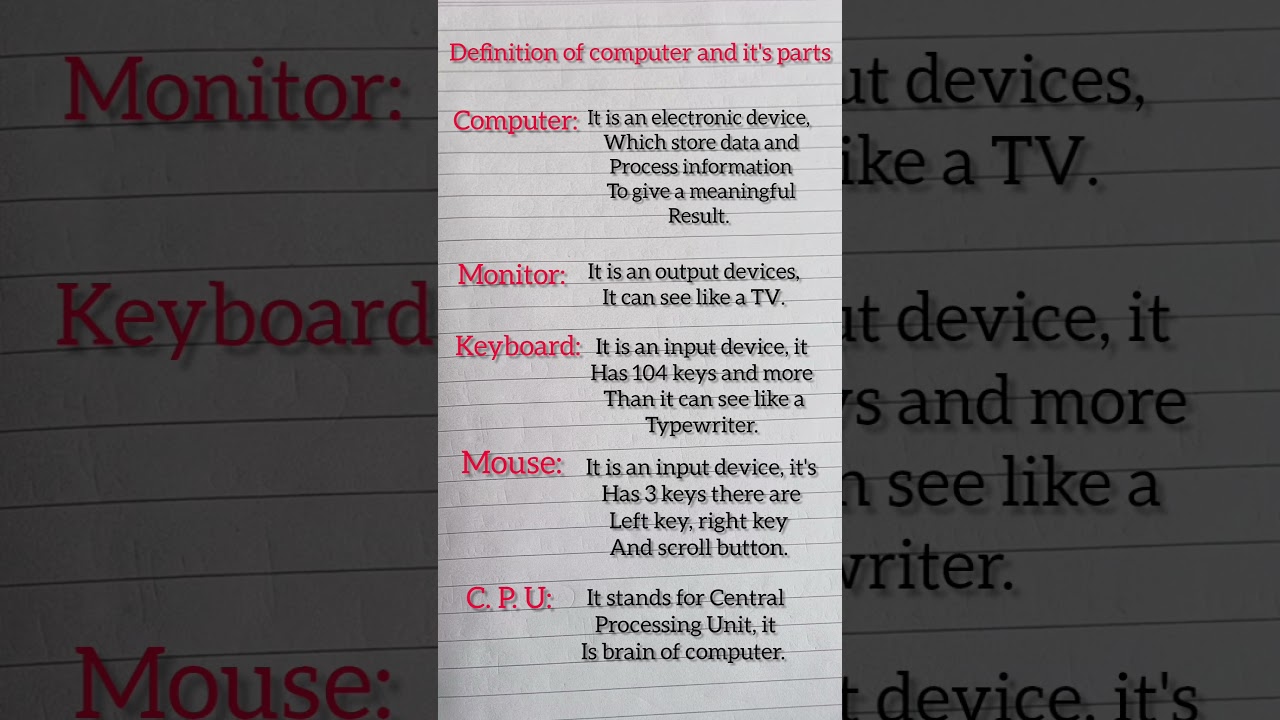 Definition of computer and it's parts
Computer: It is an electronic device,
Which store data and
Process information
To give a meaningful
Result.
Monitor: It is an output devices,
It can see like a TV.
Keyboard: It is an input device, it
Has 104 keys and more
Than it can see like a
Typewriter.
Mouse: It is an input device, it's
Has 3 keys there are
Left key, right key
And scroll button.
C. P. U: It stands for Central
Processing Unit, it
Is brain of computer.
Monitor:
Keyboard
Mouse:
ut devices,
ike a TV.
ut device, it
ys and more
n see like a
writer.
t device, it's